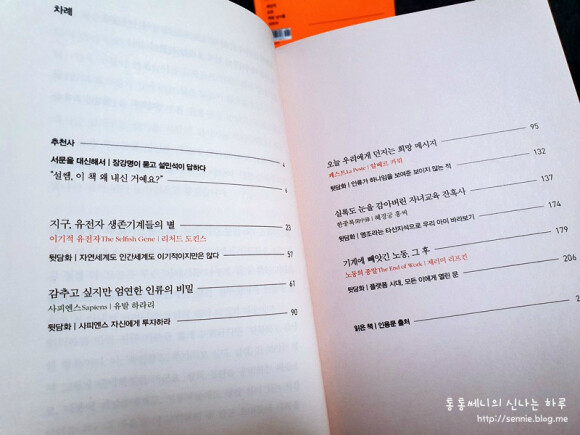 차례
추천사 4
서문을 대신해서 | 장강명이 묻고 설민석이 답하다
"설쌤, 이 책 왜 내신 거예요?" 6
지구, 유전자 생존기계들의 별 23
이기적 유전자The Selfish Gene | 리처드 도킨스
뒷담화 | 자연세계도 인간세계도 이기적이지만은 않다 57
감추고 싶지만 엄연한 인류의 비밀 61
사피엔스Sapiens | 유발 하라리
뒷담화 | 사피엔스 자신에게 투자하라 90
오늘 우리에게 던지는 희망 메시지 95
페스트La Peste | 알베르 카뮈
뒷담화 | 인류가 하나임을 보여준 보이지 않는 적 132
실록도 눈을 감아버린 자녀교육 잔혹사 137
한중록 | 혜경궁 홍씨
뒷담화 | 영조라는 타산지석으로 우리 아이 바라보기 174
기계에 빼앗긴 노동, 그 후 179
노동의 종말The End of Work | 제러미 리프킨
뒷담화 | 플랫폼 시대, 모든 이에게 열린 문 206
읽은 책 | 인용문 출처
통통쎄니의 신나는 하루
http://sennie.blog.me